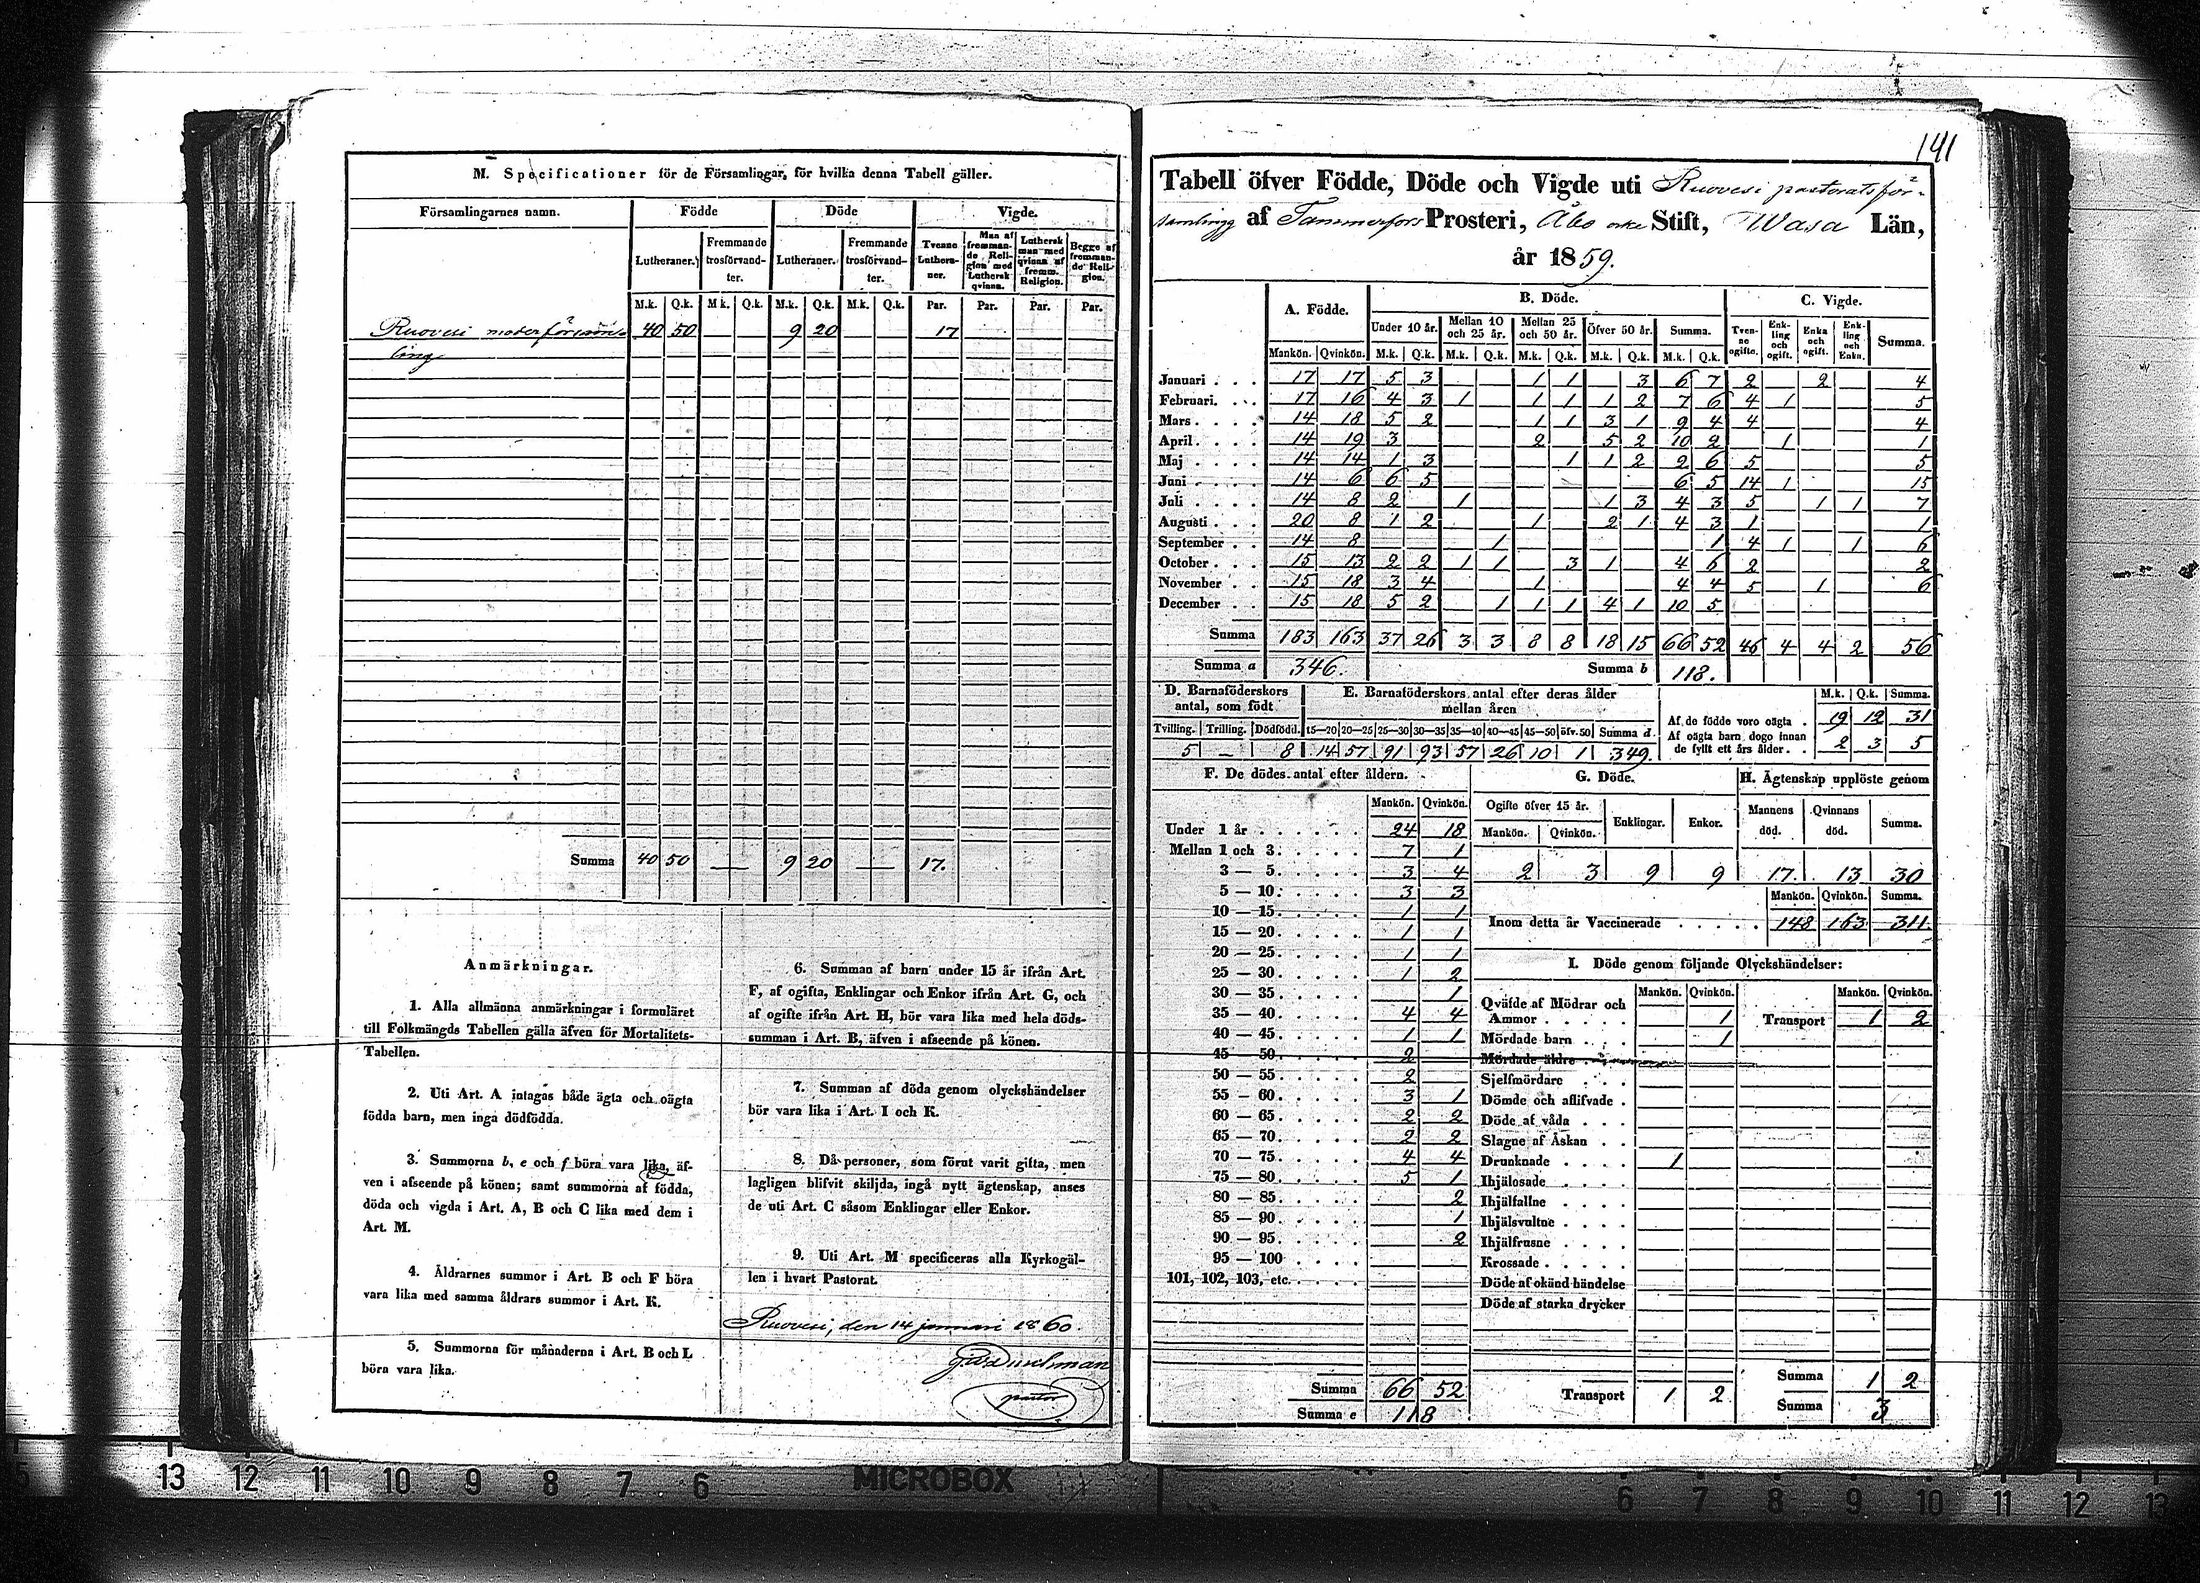 M. Specificationer för de Församlingar, för hvilka denna Tabell gäller.
Församlingarnes namn. Födde Döde Vigde.
Lutheraner. Fremmande trosförvandter. Lutheraner. Fremmande trosförvandter. Tvenne Lutheraner. Man af fremmande Religion med Luthersk qvinna. Luthersk man med qvinna af fremm. Religion. Begge af fremmande Religion.
M.k. Q.k. M k. Q.k. M.k. Q.k. M.k. Q.k. Par. Par. Par. Par.
Ruovesi moderförsam- 40 50 9 20 17
ling
Summa 40 50 — 9 20 — 17.
Anmärkningar.
1. Alla allmänna anmärkningar i formuläret
till Folkmängds Tabellen gälla äfven för Mortalitets-
Tabellen.
2. Uti Art. A intagas både ägta och oägta
födda barn, men inga dödfödda.
3. Summorna b, e och f böra vara lika, äf-
ven i afseende på könen; samt summorna af födda,
döda och vigda i Art. A, B och C lika med dem i
Art. M.
4. Åldrarnes summor i Art. B och F böra
vara lika med samma åldrars summor i Art. K.
5. Summorna för månaderna i Art. B och L
böra vara lika.
6. Summan af barn under 15 år ifrån Art.
F, af ogifta, Enklingar och Enkor ifrån Art. G, och
af ogifte ifrån Art. H, bör vara lika med hela döds-
summan i Art. B, äfven i afseende på könen.
7. Summan af döda genom olyckshändelser
bör vara lika i Art. I och K.
8. Då personer, som förut varit gifta, men
lagligen blifvit skiljda, ingå nytt ägtenskap, anses
de uti Art. C såsom Enklingar eller Enkor.
9. Uti Art. M specificeras alla Kyrkogäl-
len i hvart Pastorat.
Ruovesi, den 14 januari 1860.
pastor.
141
Tabell öfver Födde, Döde och Vigde uti Ruovesi pastoratsför-
samling af Tammerfors Prosteri, Åbo erke Stift, Wasa Län,
år 1859.
A. Födde. B. Döde. C. Vigde.
Under 10 år. Mellan 10 och 25 år. Mellan 25 och 50 år. Öfver 50 år. Summa. Tvenne ogifte. Enkling och ogift. Enka och ogift. Enkling och Enka. Summa.
Mankön. Qvinkön. M.k. Q.k. M.k. Q.k. M.k. Q.k. M.k. Q.k. M.k. Q.k.
Januari . . . 17 17 5 3 1 1 3 6 7 2 2 4
Februari. . . 17 16 4 3 1 1 1 1 2 7 6 4 1 5
Mars . . . . 14 18 5 2 1 1 3 1 9 4 4 4
April . . . . 14 19 3 2 5 2 10 2 1 1
Maj . . . . 14 14 1 3 1 1 2 2 6 5 5
Juni . . . . 14 6 6 5 6 5 14 1 15
Juli . . . . 14 8 2 1 1 3 4 3 5 1 1 7
Augusti . . . 20 8 1 2 1 2 1 4 3 1 1
September . . 14 8 1 1 4 1 1 6
October . . . 15 13 2 2 1 1 3 1 4 6 2 2
November . . 15 18 3 4 1 4 4 5 1 6
December . . 15 18 5 2 1 1 1 4 1 10 5
Summa 183 163 37 26 3 3 8 8 18 15 66 52 46 4 4 2 56
Summa a 346. Summa b 118.
D. Barnaföderskors antal, som födt E. Barnaföderskors antal efter deras ålder mellan åren M.k. Q.k. Summa.
Tvilling. Trilling. Dödfödd. 15—20 20—25 25—30 30—35 35—40 40—45 45—50 öfv. 50 Summa d.
5 — 8 14 57 91 93 57 26 10 1 349.
Af de födde voro oägta . 19 12 31
Af oägta barn dogo innan
de fyllt ett års ålder . . 2 3 5
F. De dödes antal efter åldern.
Mankön. Qvinkön.
Under 1 år . . . . . . 24 18
Mellan 1 och 3. . . . . 7 1
3 — 5. . . . . 3 4
5 — 10. . . . . 3 3
10 — 15. . . . . 1 1
15 — 20. . . . . 1 1
20 — 25. . . . . 1 1
25 — 30. . . . . 1 2
30 — 35. . . . . 1
35 — 40. . . . . 4 4
40 — 45. . . . . 1 1
45 — 50. . . . . 2
50 — 55. . . . . 2
55 — 60. . . . . 3 1
60 — 65. . . . . 2 2
65 — 70. . . . . 2 2
70 — 75. . . . . 4 4
75 — 80. . . . . 5 1
80 — 85. . . . . 2
85 — 90. . . . . 1
90 — 95. . . . . 2
95 — 100 . . . . .
101, 102, 103, etc. . . . .
Summa 66 52
Summa e 118
G. Döde. H. Ägtenskap upplöste genom
Ogifte öfver 15 år. Enklingar. Enkor. Mannens död. Qvinnans död. Summa.
Mankön. Qvinkön.
2 3 9 9 17. 13 30
Mankön. Qvinkön. Summa.
Inom detta år Vaccinerade . . . . . 148 163 311.
I. Döde genom följande Olyckshändelser:
Mankön. Qvinkön. Mankön. Qvinkön.
Qväfde af Mödrar och
Ammor . . . . . 1 Transport 1 2
Mördade barn . . . 1
Mördade äldre
Sjelfmördare . . .
Dömde och aflifvade .
Döde af våda . . .
Slagne af Åskan . .
Drunknade . . . . 1
Ihjälosade . . . .
Ihjälfallne . . . .
Ihjälsvultne . . . .
Ihjälfrusne . . . .
Krossade . . . . .
Döde af okänd händelse
Döde af starka drycker
Summa 1 2
Transport 1 2
Summa 3
MICROBOX
5 13 12 11 10 9 8 7 6
6 7 8 9 10 11 12 13